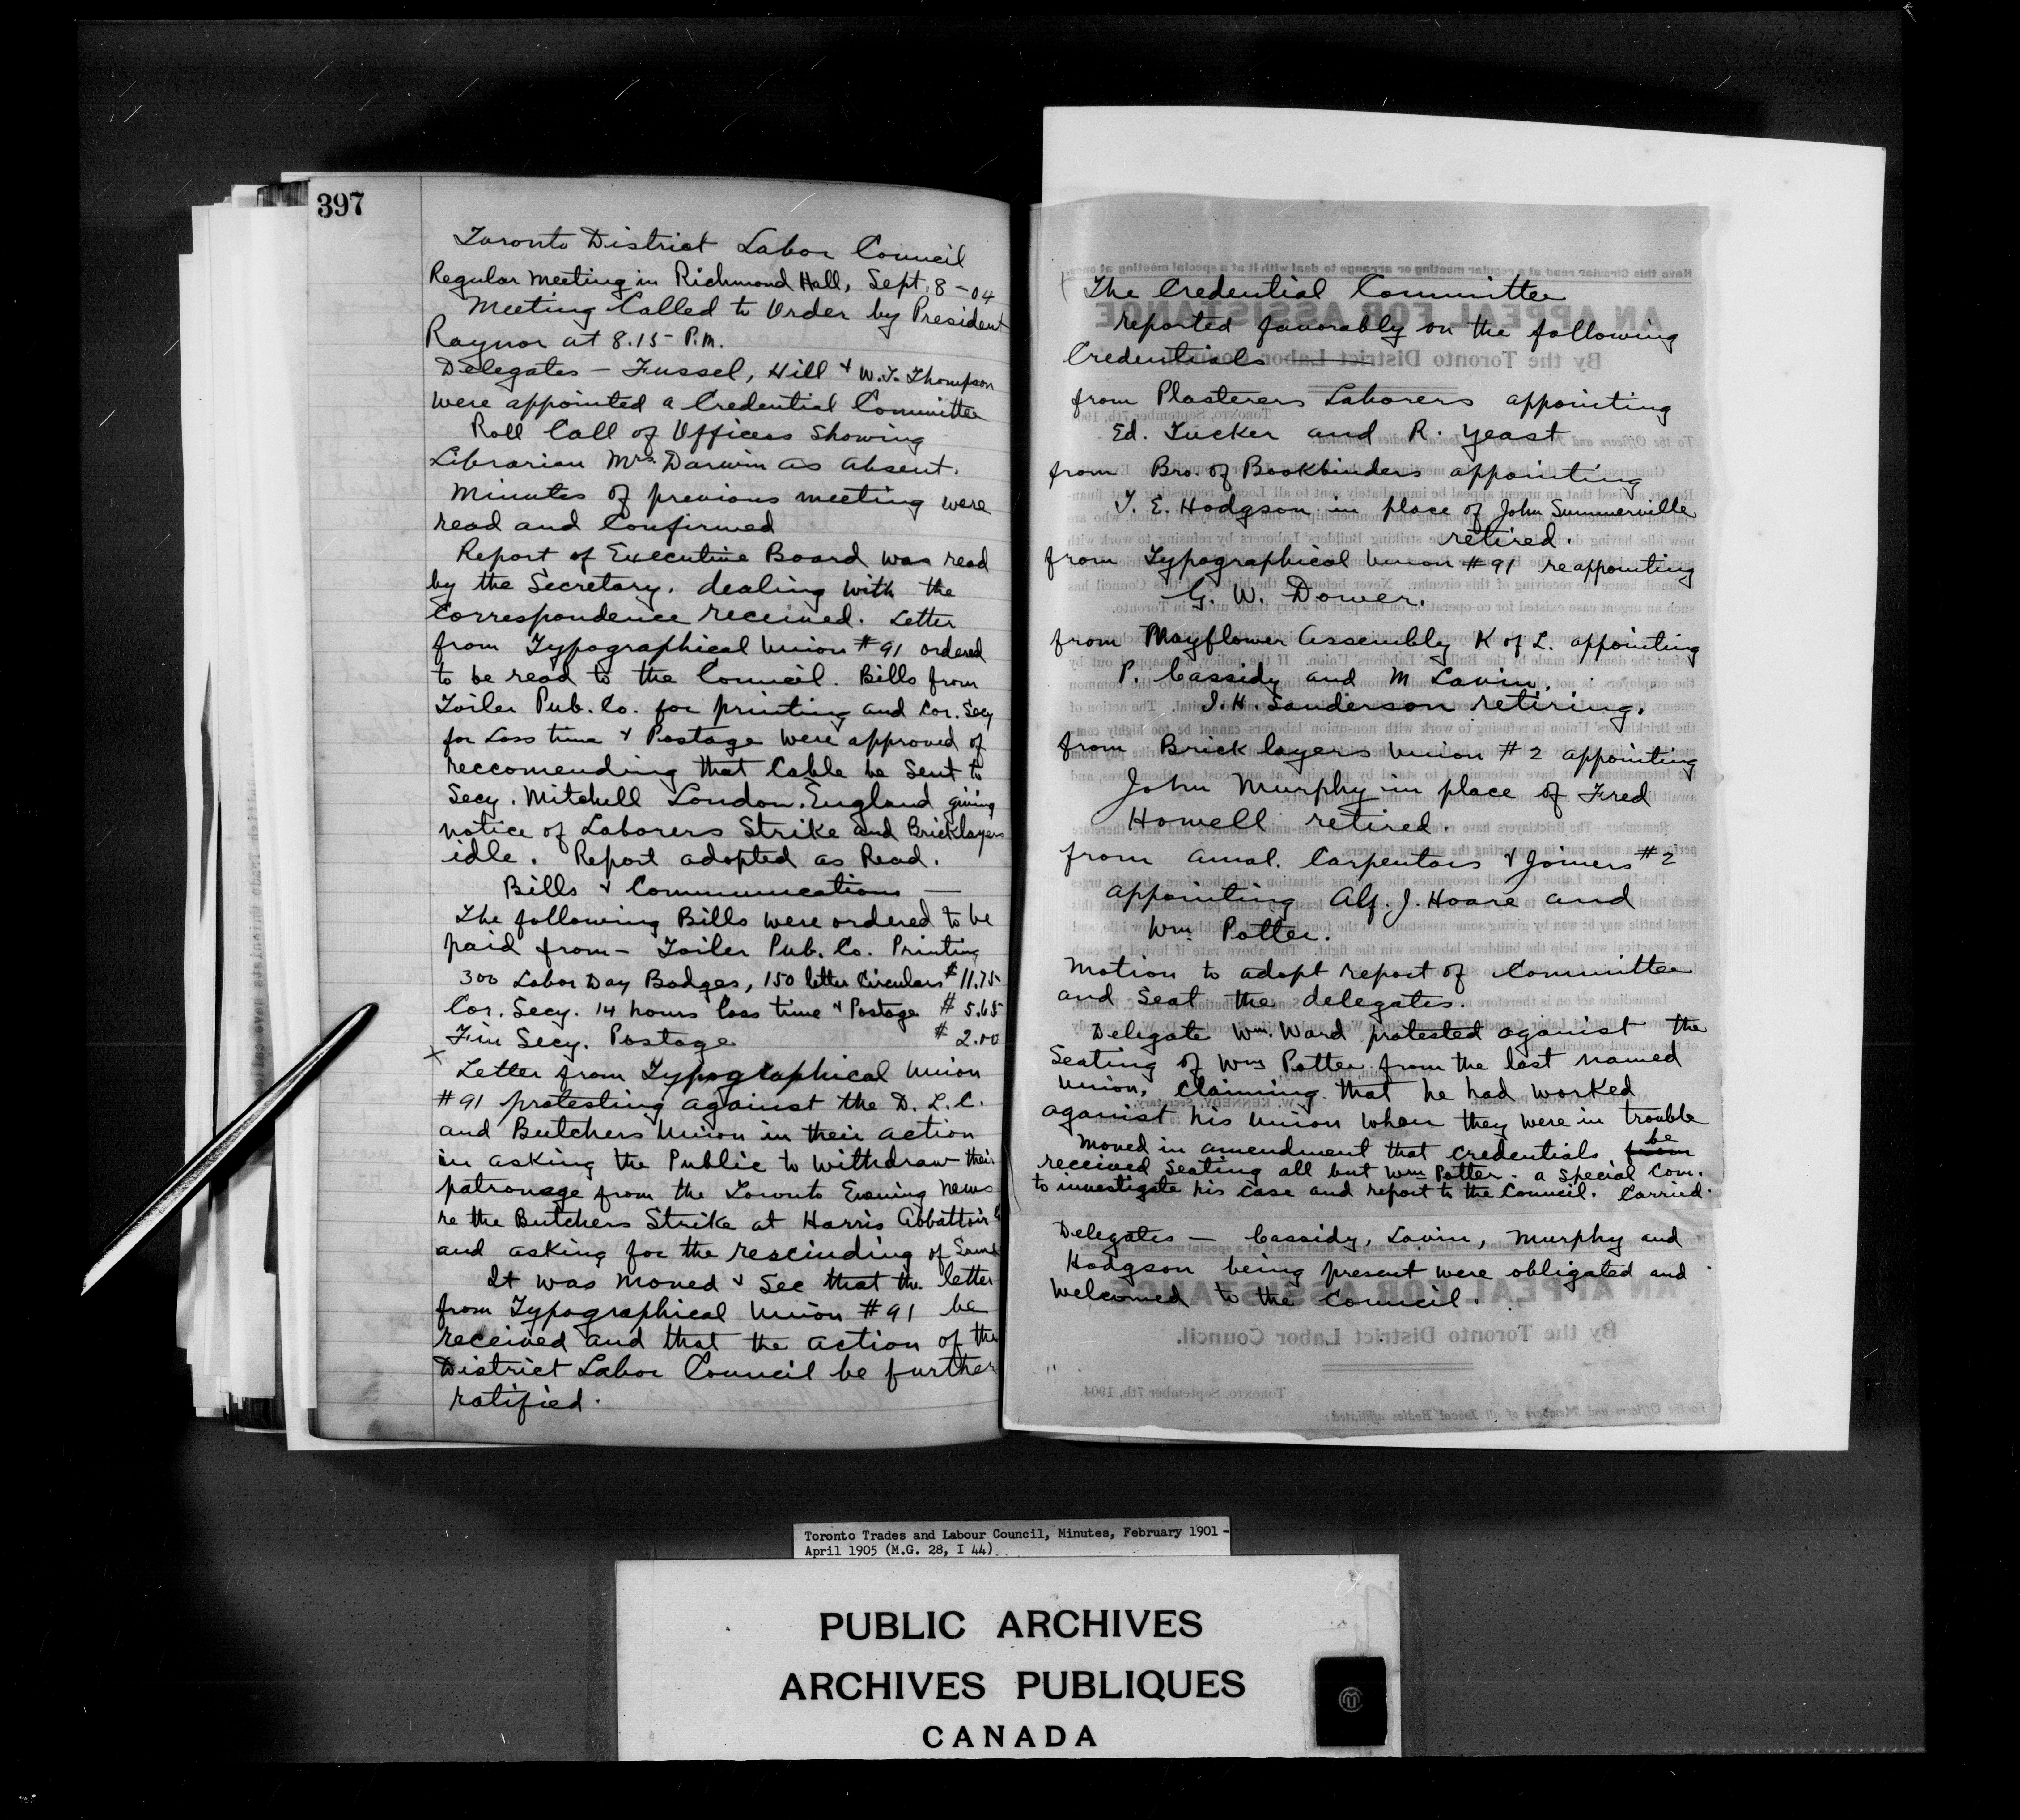 397
Toronto District Labor Council
Regular Meeting in Richmond Hall, Sept. 8 - 04
Meeting Called to Order by President
Raynor at 8.15 P.M.
Delegates - Fussel, Hill & W.T. Thompson
were appointed a Credential Committee
Roll Call of Officers Showing
Librarian Mrs. Darwin as absent.
Minutes of previous meeting were
read and Confirmed
Report of Executive Board was read
by the Secretary. dealing with the
Correspondence received. Letter
from Typographical Union #91 ordered
to be read to the Council. Bills from
Toiler Pub. Co. for printing and Cor. Secy
for Loss time & Postage were approved of
reccomending that Cable be Sent to
Secy. Mitchell London. England giving
notice of Laborers Strike and Bricklayers
idle. Report adopted as Read.
Bills & Communications —
The following Bills were ordered to be
paid from - Toiler Pub. Co. Printing
300 Labor Day Badges, 150 letter Circulars $11.75
Cor. Secy. 14 hours loss time & Postage $5.65
Fin Secy. Postage $2.00
x
Letter from Typographical Union
#91 protesting against the D. L. C.
and Butchers Union in their action
in asking the Public to withdraw their
patronage from the Toronto Evening News
re the Butchers Strike at Harris Abbattoir
and asking for the rescinding of Same
It was Moved & Sec that the letter
from Typographical Union #91 be
received and that the action of the
District Labor Council be further
ratified.
The Credential Committee
reported favorably on the following
Credentials
from Plasterers Laborers appointing
Ed. Tucker and R. Yeast
from Bro. of Bookbinders appointing
T. E. Hodgson in place of John Summerville
retired.
from Typographical Union #91 reappointing
G. W. Dower.
from Mayflower Assembly K of L. appointing
P. Cassidy and M Lavin.
J. H. Sanderson retiring.
from Bricklayers Union #2 appointing
John Murphy in place of Fred
Howell retired.
from Amal. Carpentars & Joiners #2
appointing Alf. J. Hoare and
Wm Potter.
Motion to adopt report of Committee
and Seat the delegates.
Delegate Wm. Ward protested aganist the
Seating of Wm Potter from the last named
Union, Claiming that he had worked
aganist his Union when they were in trouble
Moved in amendment that credentials be
received Seating all but Wm Potter - a Special Com.
to investigate his Case and report to the Council. Carried.
Delegates — Cassidy, Lavin, Murphy and
Hodgson being present were obligated and
Welcomed to the Council.
AN APPEAL FOR ASSISTANCE
By the Toronto District Labor Council.
TORONTO, September 7th, 1904
To the Officers and Members of all Local Bodies affiliated:
Toronto Trades and Labour Council, Minutes, February 1901 -
April 1905 (M.G. 28, I 44)
PUBLIC ARCHIVES
ARCHIVES PUBLIQUES
CANADA